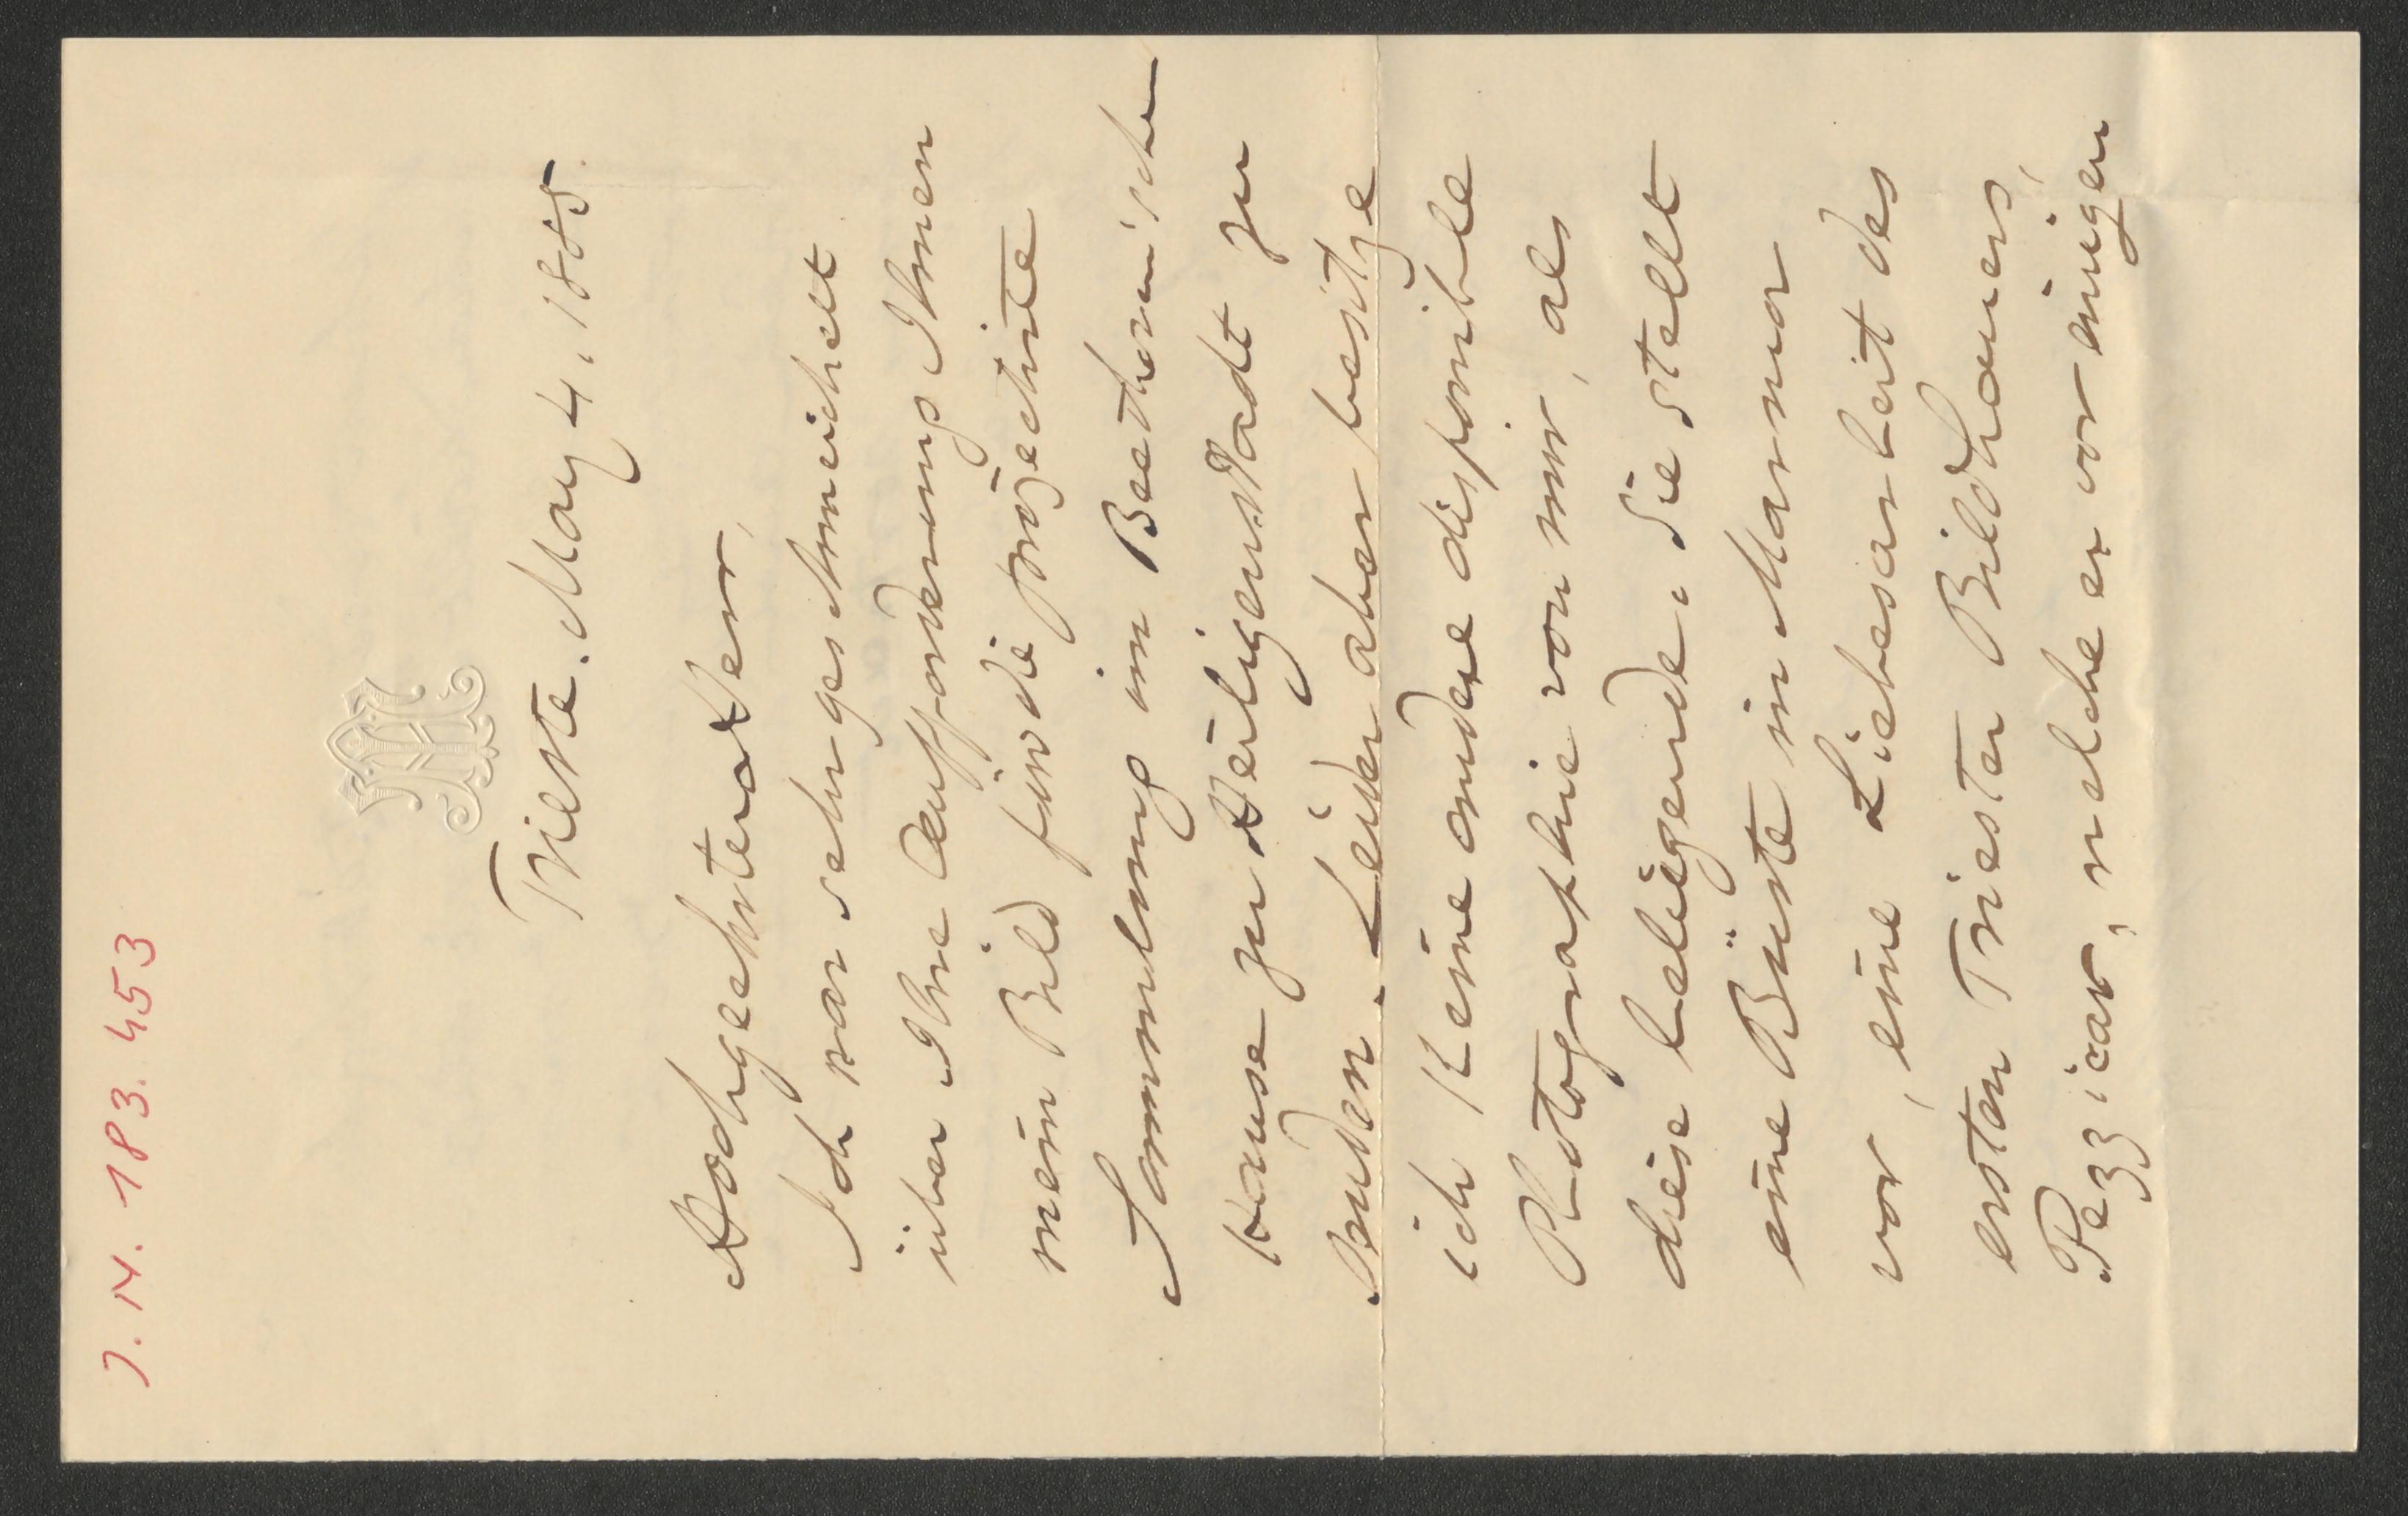 J. N. 183.453
Trieste. May 4. 1888.
Hochgeehrter Herr,
Ich war sehr geschmeichelt
über Ihre Aufforderung Ihnen
mein Bild für die projectirte
Sammlung im Beethoven'schen
Hause zu Heiligenstadt zu
senden. Leider aber besitze
ich keine andere disponible
Photographie von mir, als
diese beliegende. Sie stellt
eine Büste in Marmor
vor, eine Liebesarbeit des
ersten Triester Bildhauers,
Pezzicar, welche er vor einigen